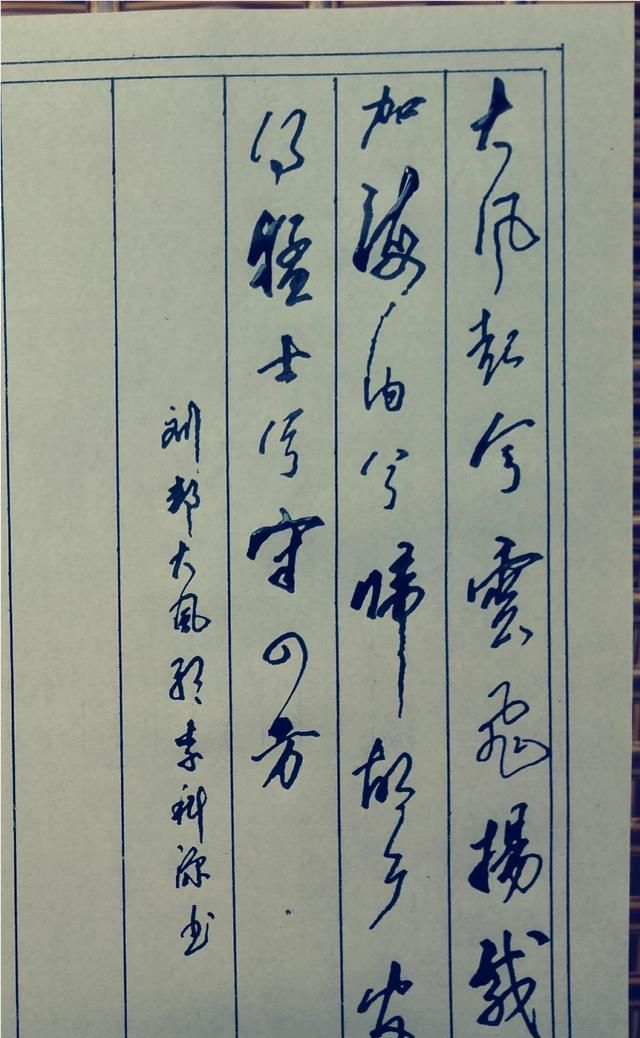 大风起兮雲飞揚威
加海内兮歸故乡安
得猛士兮守四方
刘邦大風歌李科源书